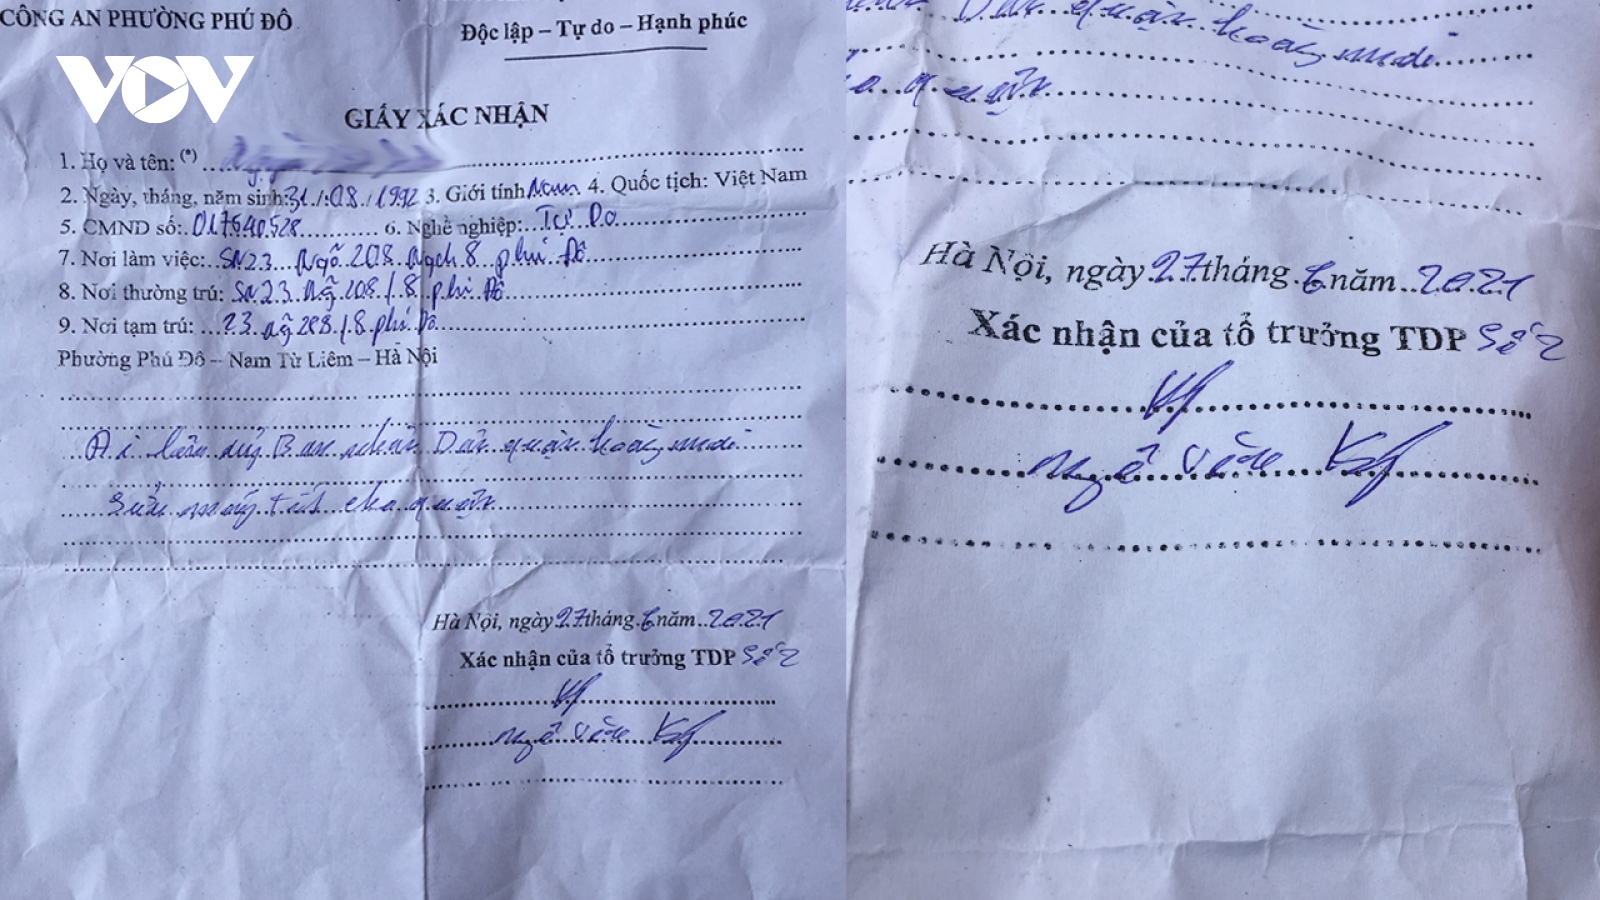 CÔNG AN PHƯỜNG PHÚ ĐÔ
Độc lập – Tự do – Hạnh phúc
VOV
GIẤY XÁC NHẬN
1. Họ và tên: (*)
2. Ngày, tháng, năm sinh: 31/08/1992 3. Giới tính Nam 4. Quốc tịch: Việt Nam
5. CMND số: 017540528 6. Nghề nghiệp: Tự Do
7. Nơi làm việc: SN23 Ngõ 208 Ngch 8 phú Đô
8. Nơi thường trú: SN 23 Ngõ 208/8 phú Đô
9. Nơi tạm trú: 23 ngõ 208/8 phú Đô
Phường Phú Đô – Nam Từ Liêm – Hà Nội
Đi Dân quận hoàng mai
cho quận
Hà Nội, ngày 27 tháng 6 năm 2021
Xác nhận của tổ trưởng TDP Số 2
ngô văn
Dân quận hoàng mai
quận
Hà Nội, ngày 27 tháng 6 năm 2021
Xác nhận của tổ trưởng TDP Số 2
ngô văn